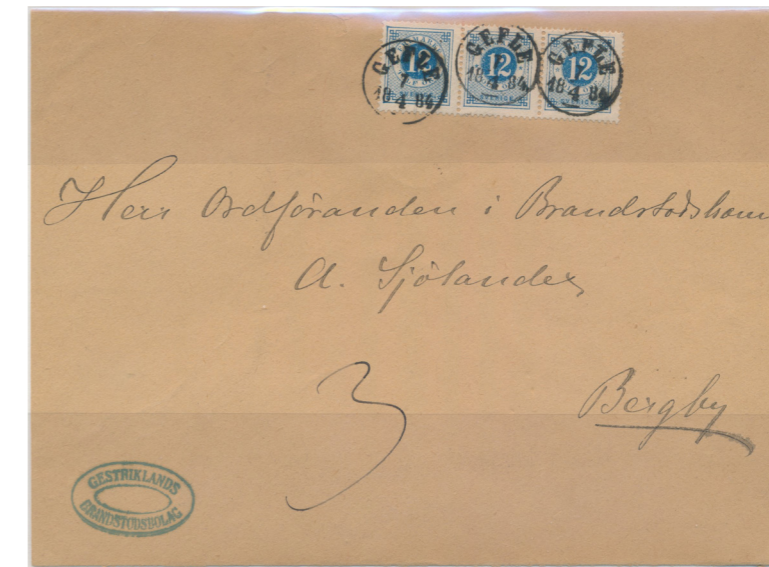 12 12 12
GEFLE
7
18 4 84
GEFLE
7
18 4 84
GEFLE
7
18 4 84
Herr Ordföranden i Brandstodskom
A. Sjölander
3
Bergby
GESTRIKLANDS
BRANDSTODSBOLAG